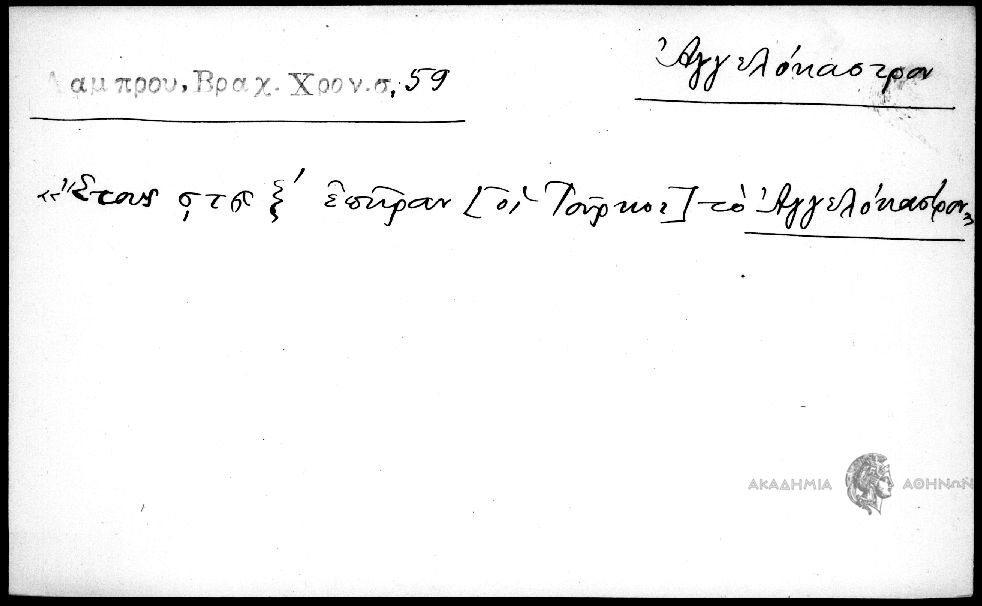 Λαμπρου, Βραχ. Χρον. σ. 59
Ἀγγελόκαστρον
«Ἔτους ξ' ἐπῆραν [οἱ Τοῦρκοι] τὸ Ἀγγελόκαστρον»
ΑΚΑΔΗΜΙΑ ΑΘΗΝΩΝ